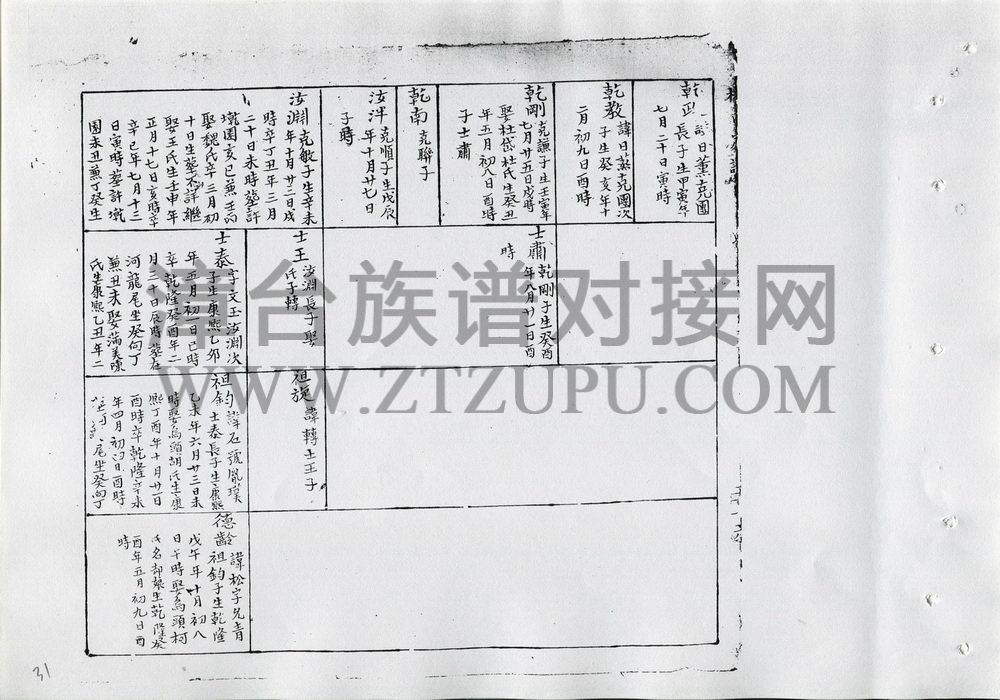 乾
長子生甲寅年
七月二十日寅時
乾教
諱日熹克國次
子生癸亥年十
二月初九日酉時
乾剛
克謙子生壬寅年
七月廿五日戌時
娶杜岱杜氏生癸丑
年五月初八日酉時
子士肅
乾南 克聯子
汝泮
克順子生戊辰
年十月廿七日
子時
汝淵
克敏子生辛未
年十月廿三日戌
時卒丁丑年三月
二十日未時葬許
壠園亥巳兼壬丙
娶魏氏辛三月初
十日生葬不詳繼
娶王氏生壬申年
正月十七日亥時卒
辛巳年七月十三
日寅時葬許壠
園未丑兼丁癸生
士肅
乾剛子生癸酉
年八月廿一日酉
時
士王
汝淵長子娶
氏子轉
士泰
字文玉汝淵次
子生康熙乙卯
年五月初一日巳時
卒乾隆癸酉年二
月二十日辰時葬在
河龍尾坐癸向丁
兼丑未娶湍美陳
氏生康熙乙丑年二
祖旋
諱轉士王子
祖鈞
諱石號胤璞
士泰長子生康熙
乙未年六月廿三日未
時娶烏頭胡氏生康
熙丁酉年十月廿一日
酉時卒乾隆辛未
年四月初四日酉時
尾坐癸向丁
德齡
諱松字允青
祖鈞子生乾隆
戊午年十月初八
日午時娶烏頭柯
氏名却娘生乾隆癸
酉年五月初九日酉
時
31
漳台族谱对接网
WWW.ZTZUPU.COM